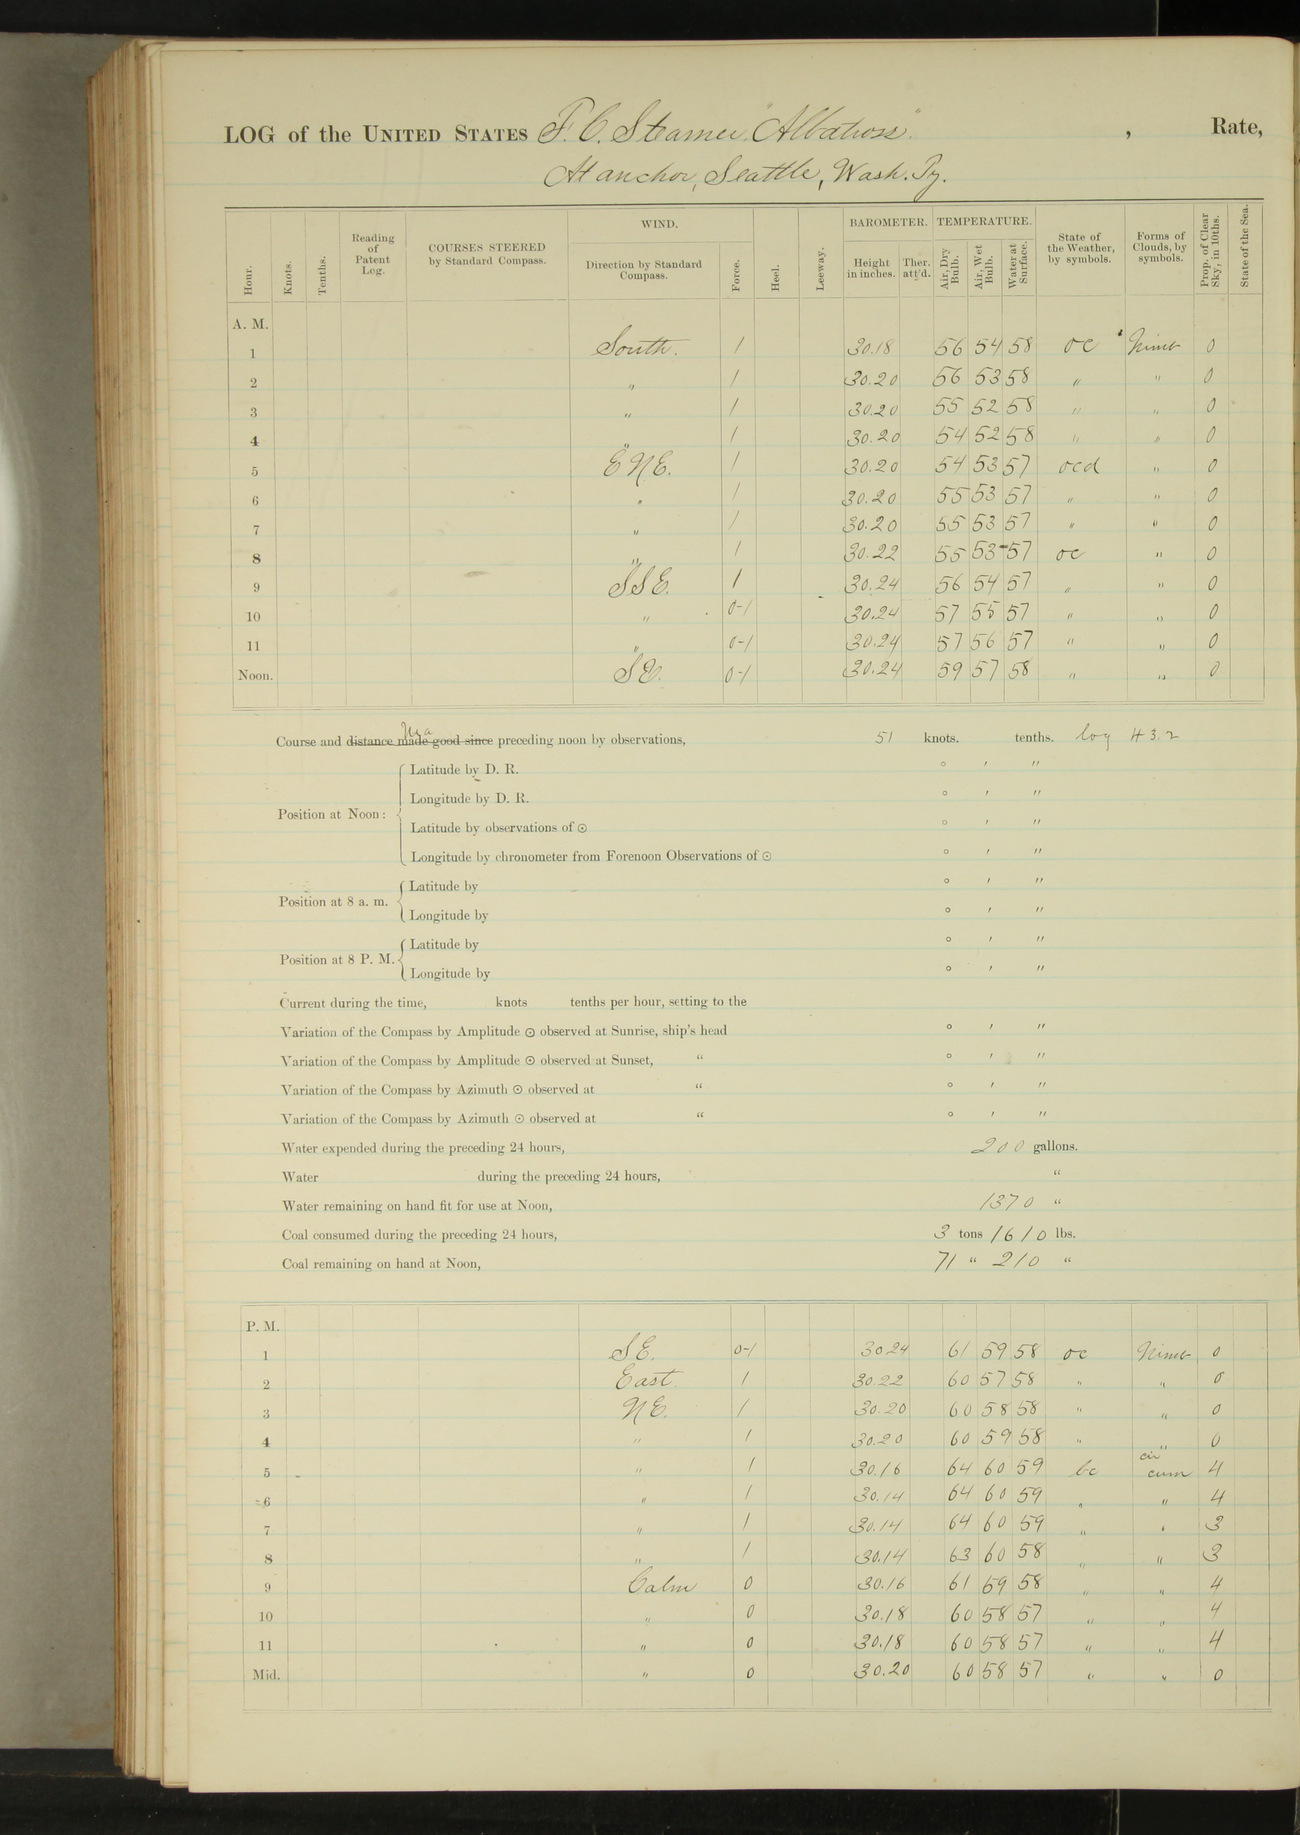 LOG of the UNITED STATES F. C. Steamer "Albatross", Rate,
At anchor, Seattle, Wash. Ty.
Hour. Knots. Tenths. Reading of Patent Log. COURSES STEERED by Standard Compass. WIND. Direction by Standard Compass. Force. Heel. Leeway. BAROMETER. Height in inches. Ther. att'd. TEMPERATURE. Air, Dry Bulb. Air, Wet Bulb. Water at Surface. State of the Weather, by symbols. Forms of Clouds, by symbols. Prop. of Clear Sky, in 10ths. State of the Sea.
A. M.
1 South. 1 30.18 56 54 58 oc Nimb 0
2 " 1 30.20 56 53 58 " " 0
3 " 1 30.20 55 52 58 " " 0
4 " 1 30.20 54 52 58 " " 0
5 ENE. 1 30.20 54 53 57 ocd " 0
6 " 1 30.20 55 53 57 " " 0
7 " 1 30.20 55 53 57 " " 0
8 " 1 30.22 55 53 57 oc " 0
9 SSE. 1 30.24 56 54 57 " " 0
10 " 0-1 30.24 57 55 57 " " 0
11 " 0-1 30.24 57 56 57 " " 0
Noon. SE. 0-1 30.24 59 57 58 " " 0
Course and distance made good since preceding noon by observations, 51 knots. tenths. log 43.2
Position at Noon:
Latitude by D. R. ° ′ ″
Longitude by D. R. ° ′ ″
Latitude by observations of ☉ ° ′ ″
Longitude by chronometer from Forenoon Observations of ☉ ° ′ ″
Position at 8 a. m.
Latitude by ° ′ ″
Longitude by ° ′ ″
Position at 8 P. M.
Latitude by ° ′ ″
Longitude by ° ′ ″
Current during the time, knots tenths per hour, setting to the
Variation of the Compass by Amplitude ☉ observed at Sunrise, ship's head ° ′ ″
Variation of the Compass by Amplitude ☉ observed at Sunset, " ° ′ ″
Variation of the Compass by Azimuth ☉ observed at " ° ′ ″
Variation of the Compass by Azimuth ☉ observed at " ° ′ ″
Water expended during the preceding 24 hours, 200 gallons.
Water during the preceding 24 hours, "
Water remaining on hand fit for use at Noon, 1370 "
Coal consumed during the preceding 24 hours, 3 tons 1610 lbs.
Coal remaining on hand at Noon, 71 " 210 "
P. M.
1 SE. 0-1 30.24 61 59 58 oc Nimb 0
2 East. 1 30.22 60 57 58 " " 0
3 NE. 1 30.20 60 58 58 " " 0
4 " 1 30.20 60 59 58 " " 0
5 " 1 30.16 64 60 59 bc cir cum 4
6 " 1 30.14 64 60 59 " " 4
7 " 1 30.14 64 60 59 " " 3
8 " 1 30.14 63 60 58 " " 3
9 Calm 0 30.16 61 59 58 " " 4
10 " 0 30.18 60 58 57 " " 4
11 " 0 30.18 60 58 57 " " 4
Mid. " 0 30.20 60 58 57 " " 0